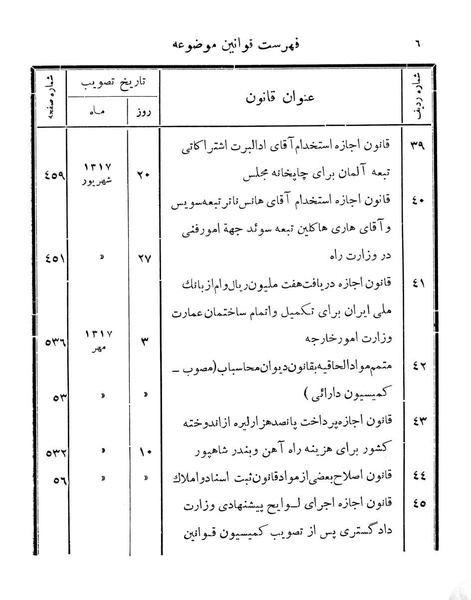 ٦ فهرست قوانین موضوعه
شماره ردیف عنوان قانون تاریخ تصویب شماره صفحه
روز ماه
۳۹ قانون اجازه استخدام آقای ادالبرت اشتراکاتی
تبعه آلمان برای چاپخانه مجلس ۲۰ ۱۳۱۷ شهریور ٤٥۹
٤۰ قانون اجازه استخدام آقای هانس نانر تبعه سویس
و آقای هاری هاکلین تبعه سوئد جهة امور فنی
در وزارت راه ۲۷ » ٤٥۱
٤۱ قانون اجازه دریافت هفت ملیون ریال وام از بانك
ملی ایران برای تکمیل و اتمام ساختمان عمارت
وزارت امور خارجه ۳ ۱۳۱۷ مهر ٥۳٦
٤۲ متمم مواد الحاقیه بقانون دیوان محاسباب (مصوب –
کمیسیون دارائی) » » ٥۳
٤۳ قانون اجازه پرداخت پانصد هزار لیره از اندوخته
کشور برای هزینه راه آهن و بندر شاهپور ۱۰ » ٥۳۲
٤٤ قانون اصلاح بعضی از مواد قانون ثبت اسناد و املاك » » ٥٦
٤٥ قانون اجازه اجرای لوایح پیشنهادی وزارت
دادگستری پس از تصویب کمیسیون قوانین